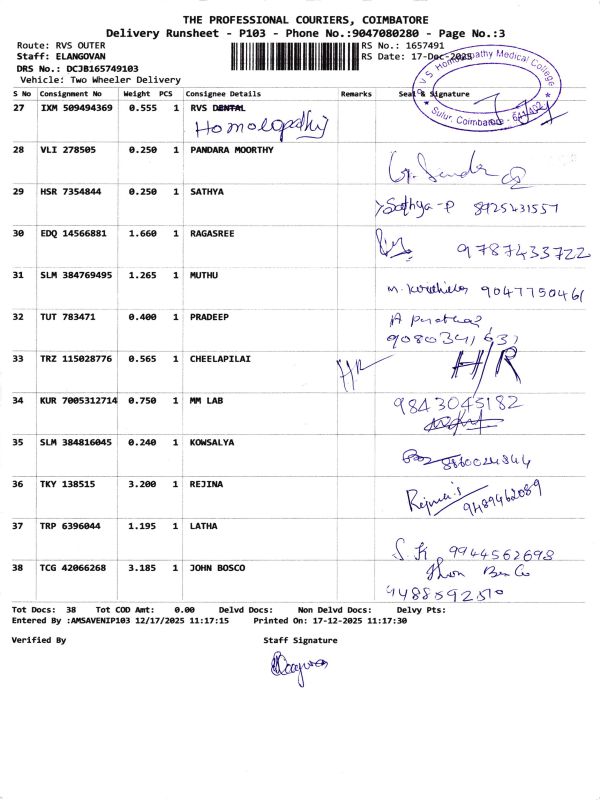 THE PROFESSIONAL COURIERS, COIMBATORE
Delivery Runsheet - P103 - Phone No.:9047080280 - Page No.:3
Route: RVS OUTER RS No.: 1657491
Staff: ELANGOVAN RS Date: 17-Dec-2025
DRS No.: DCJB165749103
Vehicle: Two Wheeler Delivery
V.S. Homoeopathy Medical College
Sulur, Coimbatore - 641 402
S No Consignment No Weight PCS Consignee Details Remarks Seal & Signature
27 IXM 509494369 0.555 1 RVS DENTAL
Homoeopathy
28 VLI 278505 0.250 1 PANDARA MOORTHY
29 HSR 7354844 0.250 1 SATHYA
Sathya-P 8925431557
30 EDQ 14566881 1.660 1 RAGASREE
9787433722
31 SLM 384769495 1.265 1 MUTHU
9047750461
32 TUT 783471 0.400 1 PRADEEP
33 TRZ 115028776 0.565 1 CHEELAPILAI
H/R H/R
34 KUR 7005312714 0.750 1 MM LAB
9843045182
35 SLM 384816045 0.240 1 KOWSALYA
36 TKY 138515 3.200 1 REJINA
9489462089
37 TRP 6396044 1.195 1 LATHA
S.K 9944562698
38 TCG 42066268 3.185 1 JOHN BOSCO
9488592510
Tot Docs: 38 Tot COD Amt: 0.00 Delvd Docs: Non Delvd Docs: Delvy Pts:
Entered By :AMSAVENIP103 12/17/2025 11:17:15 Printed On: 17-12-2025 11:17:30
Verified By Staff Signature